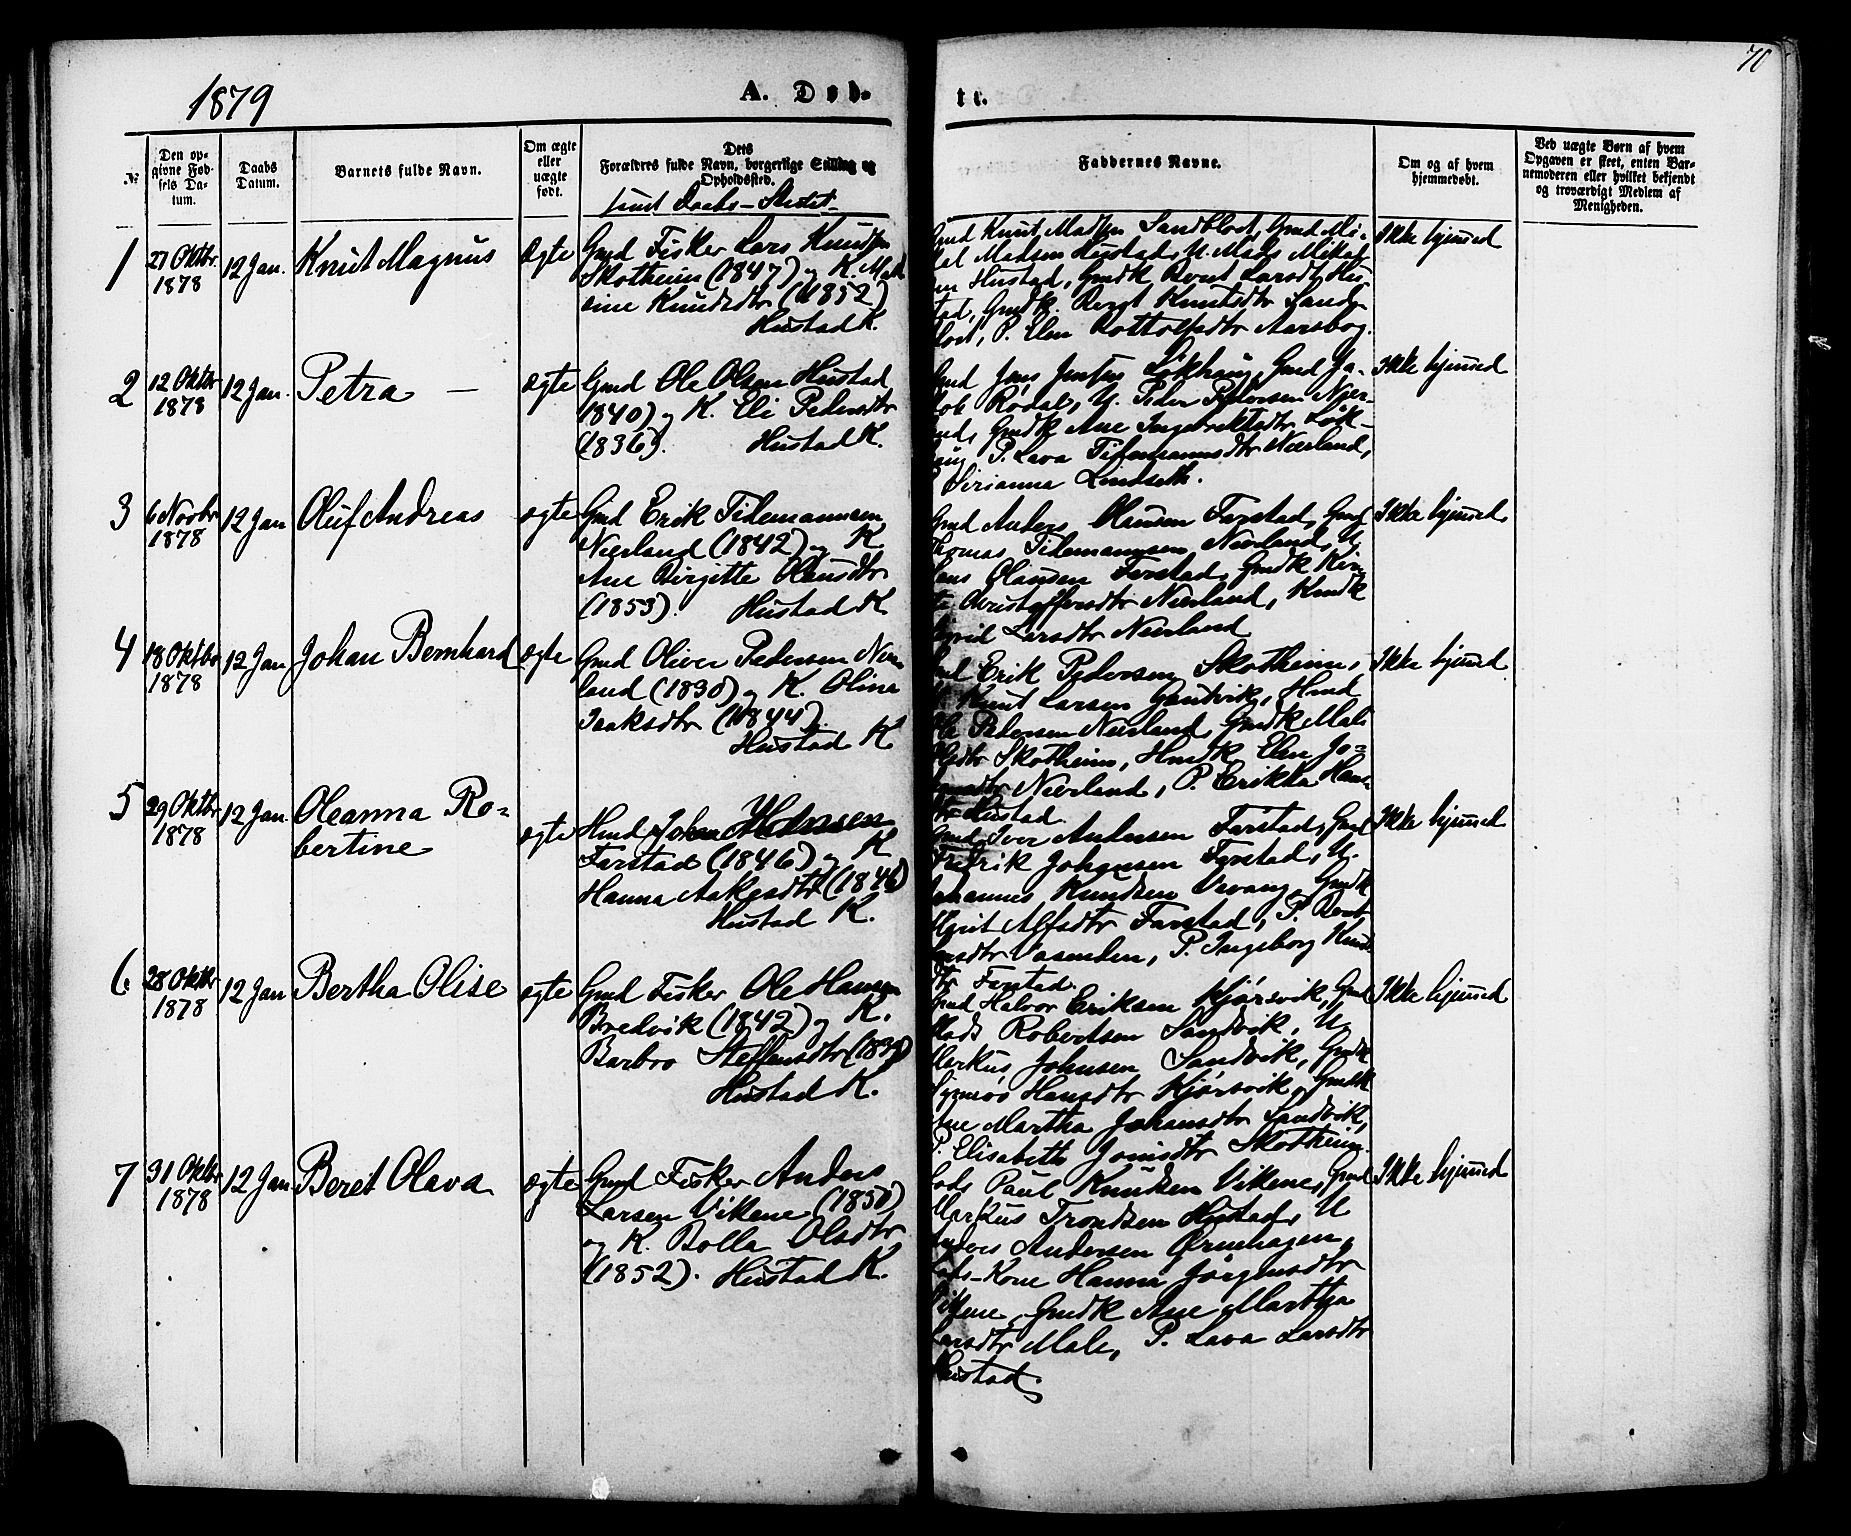 70
1879
A. Døb-
te.
№
Den op-
givne Fød-
sels Da-
tum.
Daabs
Datum.
Barnets fulde Navn.
Om ægte
eller
uægte
født.
Dets
Forældres fulde Navn, borgerlige Stilling og
Opholdssted.
samt Daabs-Stedet
Faddernes Navne.
Om og af hvem
hjemmedøbt.
Ved uægte Børn af hvem
Opgaven er skeet, enten Bar-
nemoderen eller hvilket bekjendt
og troværdigt Medlem af
Menigheden.
1
27 Oktbr.
1878
12 Jan.
Knut Magnus
Ægte
Gmd Fisker Lars Knudsen
Skotheim (1847) og K.
Knudsdtr (1852)
Hustad K.
Gmd Knut Madsen Sandblost, Gmd Mi-
kal Madsen Hustad, U. Mads Mikal-
sen Hustad, Gmdk Beret Larsdtr Hu-
stad, Gmdk. Beret Knutsdtr Sand-
blost, P. Elen Aarsbog.
Ikke hjemmed
2
12 Oktbr
1878
12 Jan.
Petra —
ægte
Gmd Ole Olsen Hustad
(1840) og K. Eli Pedersdtr
(1836). Hustad K.
Gmd Jens Jensen Løkhaug, Gmd Ja-
kob Rødal, U. Peder Pedersen Nier-
land, Gmdk Ane Ingebrektsdtr Løk-
haug P. Lava Tidemannsdtr Nierland,
P. Sirianna Lindseth.
Ikke hjemmed
3
6 Novbr
1878
12 Jan
Oluf Andreas
ægte
Gmd Erik Tidemannsen
Nierland (1842) og K.
Ane Birgitte Olausdtr
(1853). Hustad K
Gmd Anders Olausen Farstad, Gmd
Thomas Tidemannsen Nierland, U.
Hans Olausen Farstad, Gmdk
Christoffersdtr Nierland, Kmdk
Larsdtr Nierland
Ikke hjemmed
4
18 Oktbr
1878
12 Jan
Johan Bernhard
ægte
Gmd Oliver Pedersen Nier-
land (1830) og K. Oline
Isaksdtr (1844).
Hustad K
Gmd Erik Pedersen Skotheim,
U. Knut Larsen Gaustvik, Hmd
Ole Pedersen Nierland, Gmdk Mali
Olsdtr Skotheim, Hmdk Elen Jo-
Nierland, P. Erikka Hans-
dtr Hustad.
Ikke hjemmed
5
29 Oktbr
1878
12 Jan.
Oleanna Ro-
bertine
ægte
Hmd Johan
Farstad (1846) og K
Hanna Aakesdtr (1846)
Hustad K.
Gmd Iver Andersen Farstad, Gmd
Fredrik Johansen Farstad, U.
Johannes Knudsen Vevang, Gmdk
Marit Alfsdtr Farstad, P. Beret
Vasenden, P. Ingeborg Knuds-
dtr Farstad.
Ikke hjemmed
6.
28 Oktbr
1878
12 Jan
Bertha Olise
ægte
Gmd Fisker Ole Hansen
Bredvik (1842) og K.
Barbro Steffensdtr
Hustad K.
Gmd Halvor Eriksen Kjørsvik, Gmd
Mads Robertsen Sandvik, U.
Markus Johnsen Sandvik, Gmdk
Hansdtr Kjørsvik, Gmdk
Ane Martha Johansdtr Sandvik,
P. Elisabeth Jonsdtr Skotheim
Ikke hjemmed
7
31 Oktbr
1878
12 Jan
Beret Olava
ægte
Gmd Fisker Anders
Larsen Vikene (1850)
og K. Bolla Olsdtr
(1852). Hustad K.
Lods Paul Knudsen Vikene, Gmd
Markus Trondsen Hustad, U
Anders Andersen Ørnehagen,
Lods-Kone Hanna Jørgensdtr
Vikene, Gmdk Ane Martha
Larsdtr Male, P. Lava Larsdtr
Hustad.
Ikke hjemmed